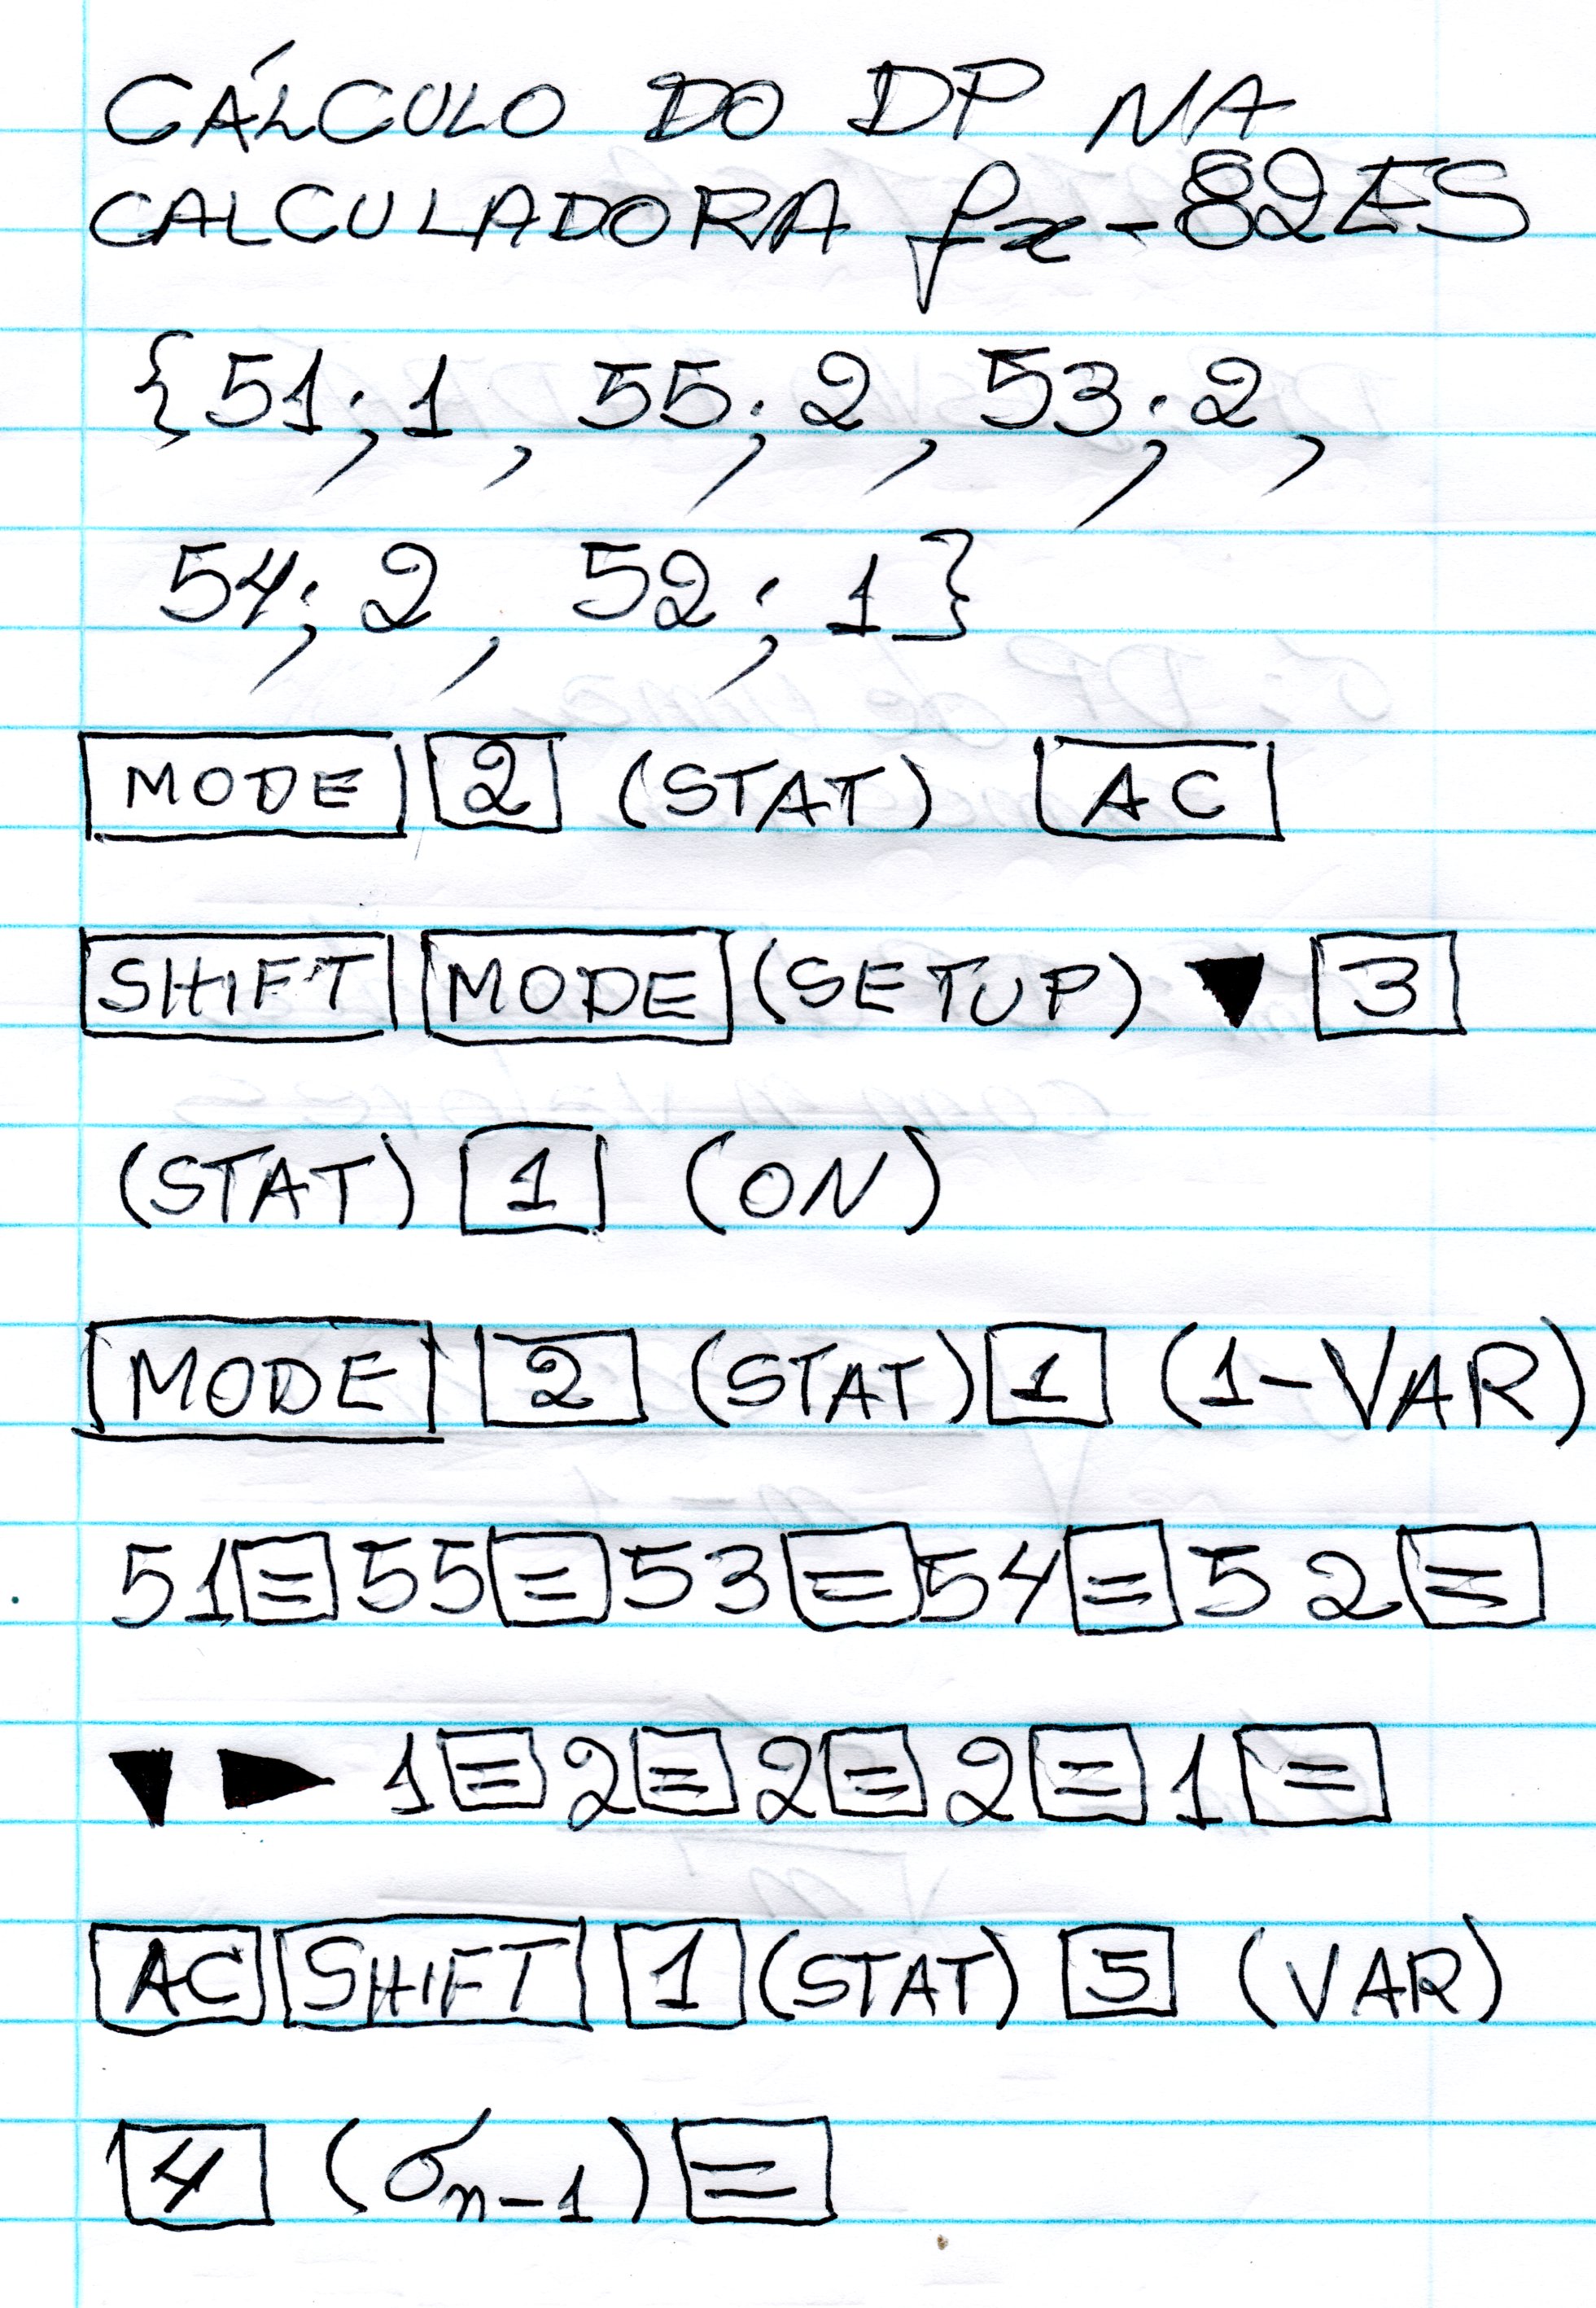 CÁLCULO DO DP NA
CALCULADORA fx-82ES
{51;1, 55;2, 53;2,
54;2, 52;1}
MODE 2 (STAT) AC
SHIFT MODE (SETUP) ▼ 3
(STAT) 1 (ON)
MODE 2 (STAT) 1 (1-VAR)
51 = 55 = 53 = 54 = 52 =
▼ ► 1 = 2 = 2 = 2 = 1 =
AC SHIFT 1 (STAT) 5 (VAR)
4 (σn-1) =